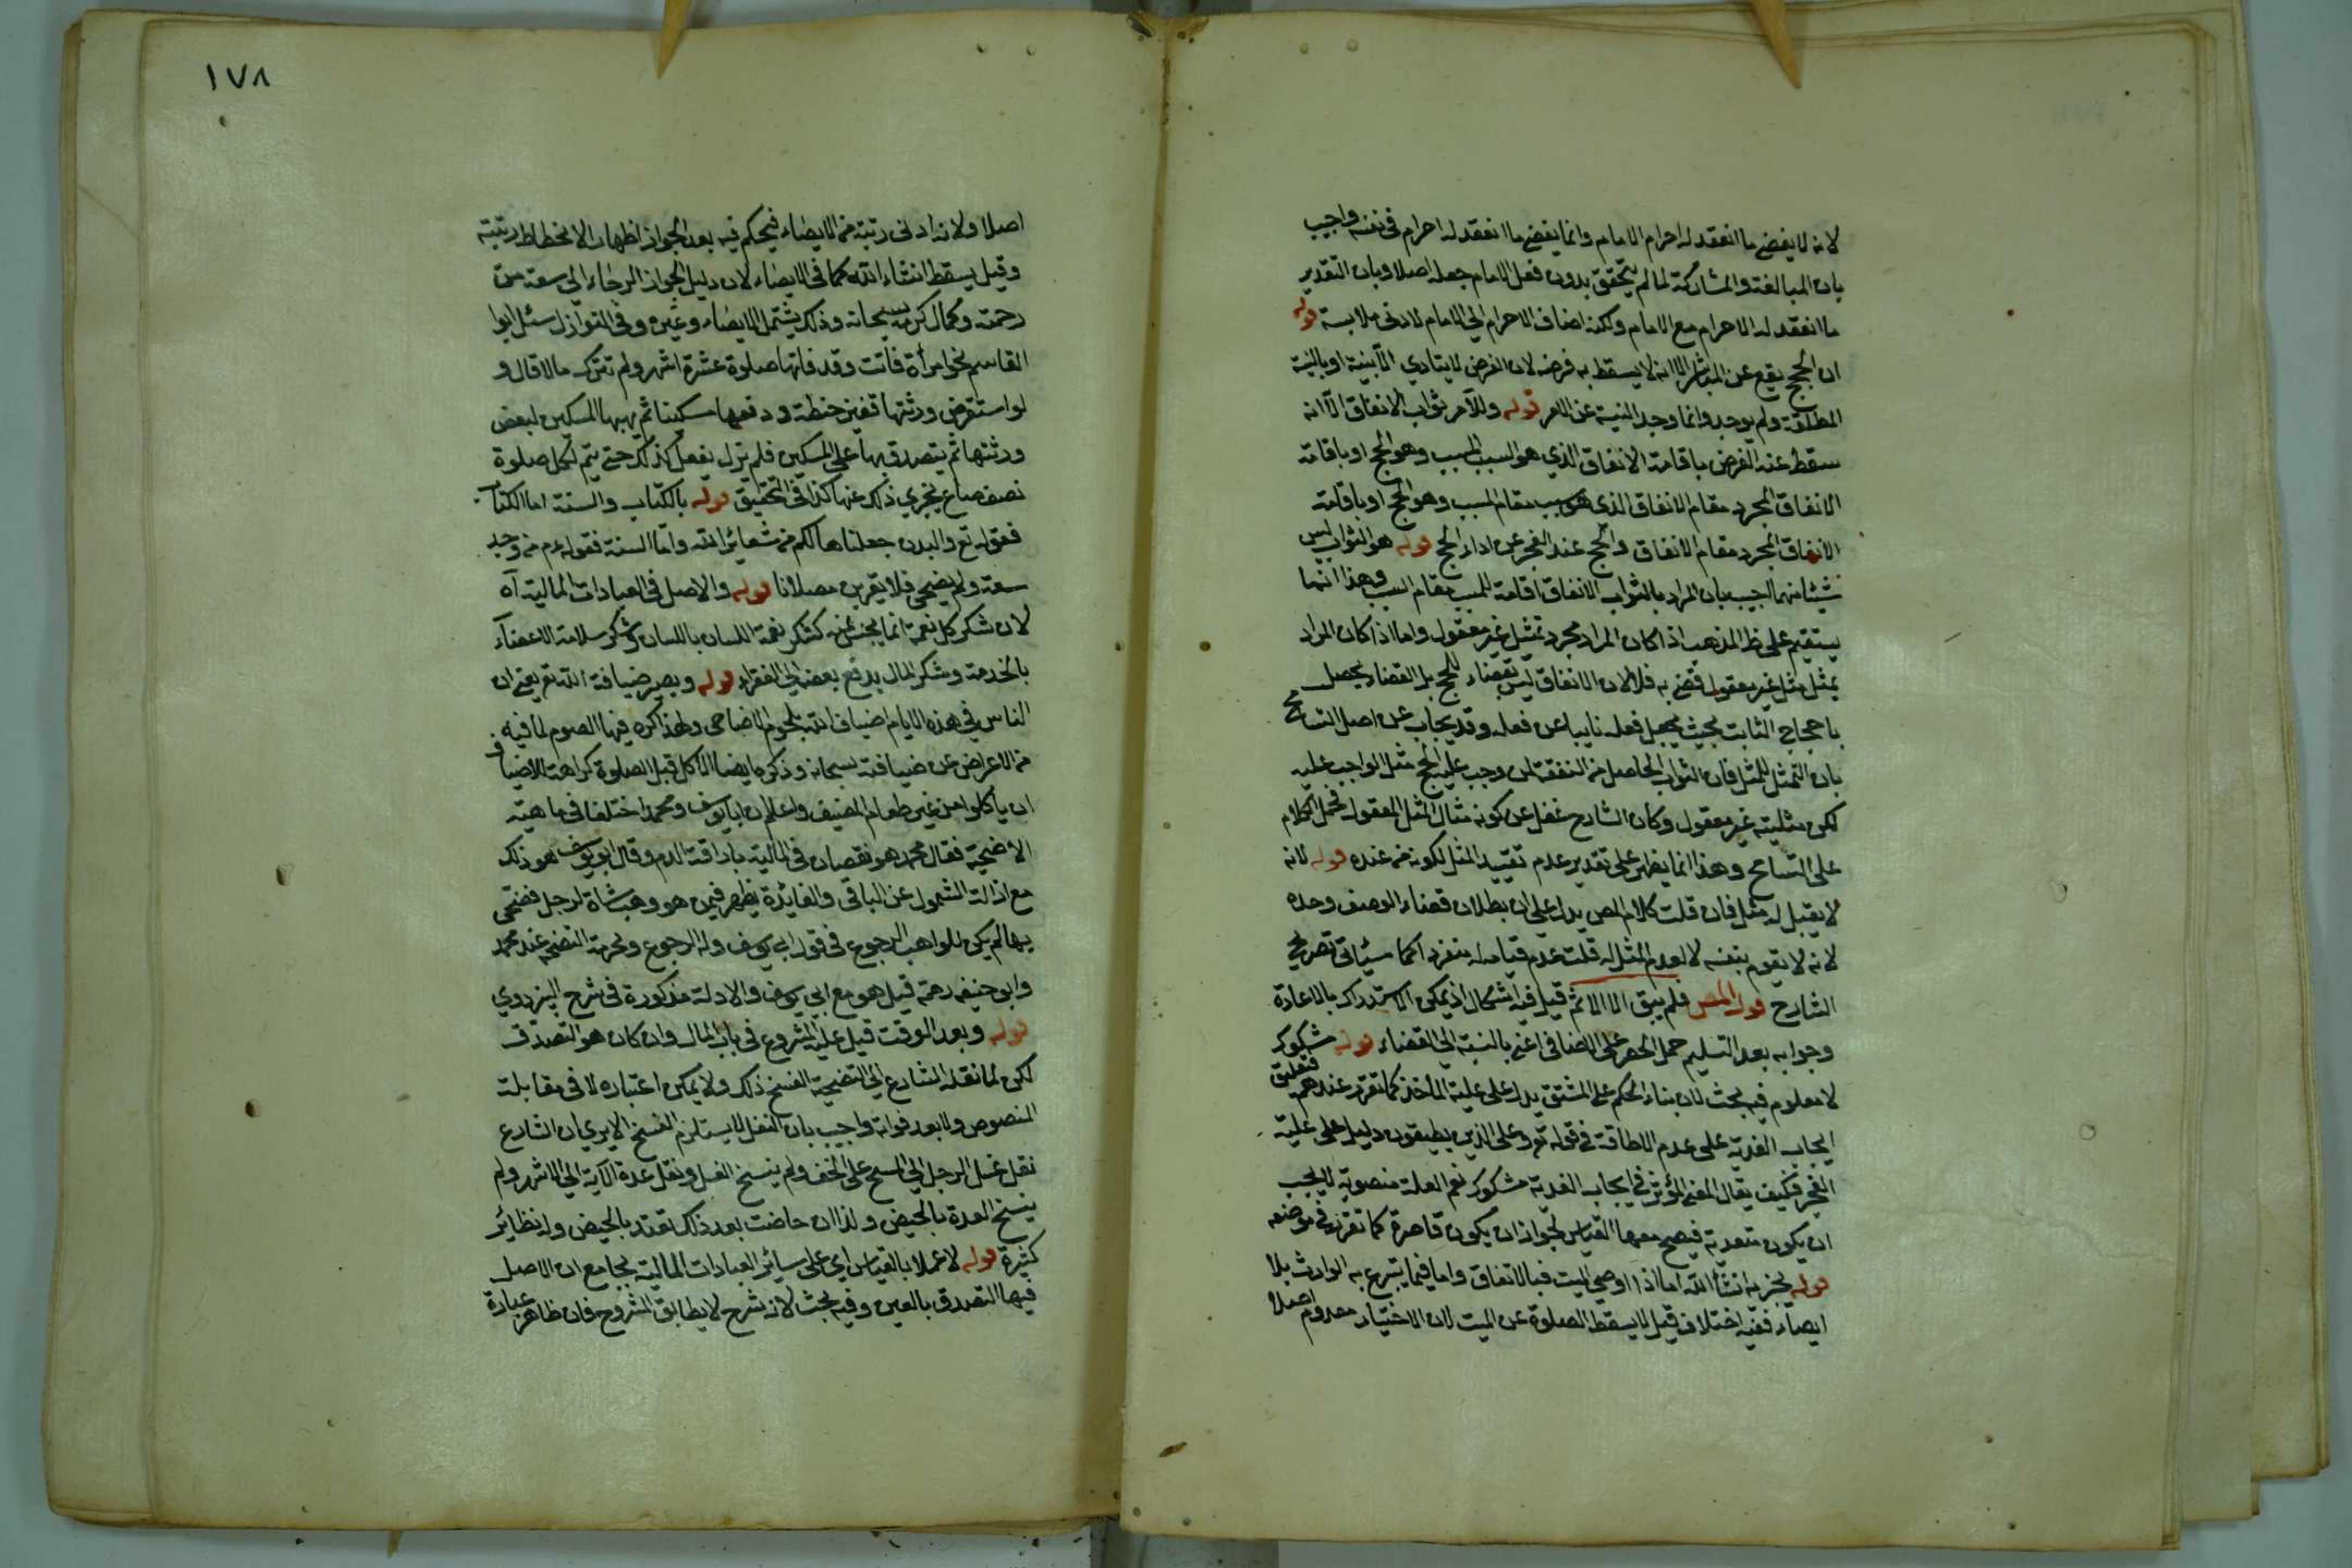 لانه لا يقضي ما انعقد له احرام الامام وانما يقضي ما انعقد له احرام في نفسه واجيب
بان المبالغة والمشاركة لما لم يتحقق بدون فعل الامام جعله اصلا وبان التقدير
ما انعقد له الاحرام مع الامام ولكنه اضاف الاحرام الي الامام لادنى ملابسة قوله
ان الحج يقع عن المباشر الا انه لا يسقط به فرضه لان الفرض لا يتادي الا بنيته او بالنية
المطلقة ولم يوجد وانما وجد النية عن الامر قوله وللآمر ثواب الانفاق الا انه
سقط عنه الفرض باقامة الانفاق الذي هو السبب المسبب وهو الحج او باقامة
الانفاق المجرد مقام الانفاق الذي هو سبب مقام المسبب وهو الحج او باقامة
الانفاق المجرد مقام الانفاق والحج عند العجز عن اداء الحج قوله هو الثواب ليس
شيئا منهما اجيب بان المراد بالثواب الانفاق اقامة للمسبب مقام السبب وهذا انما
يستقيم على ظ المذهب اذا كان المراد مجرد تمثيل غير معقول واما اذا كان المراد
بمثل مثل غير معقول قضي به فلا لان الانفاق ليس بقضاء للحج بل القضاء يحصل
باحجاج الثابت بحيث يجعل فعله نايبا عن فعله وقد يجاب عن اصل التسامح
بان التمثل للمثل فان الثواب الحاصل من النفقة لمن وجب عليه الحج مثل الواجب عليه
لكن مثليته غير معقول وكأن الشارح غفل عن كونه مثال المثل المعقول فحمل الكلام
على التسامح وهذا انما يظهر على تقدير عدم تقييد المثل لكونه من عنده قوله لانه
لا يقبل له مثل فان قلت كلام المص يدل على ان بطلان قضاء الوصف وحده
لانه لا يقوم بنفسه لا لعدم المثل له قلت عدم قيامه منفردا كما سيأتي تصريح
الشارح قوله المص فلم يبق الا الاثم قيل فيه اشكال اذ يمكن الاستدراك بالاعادة
وجوابه بعد التسليم حمل الحصر على الاضافي اعني بالنسبة الي القضاء قوله مشكوك
لا معلوم فيه بحث لان بناء الحكم على المشتق يدل على علية المأخذ كما تقرر عندهم فتعليق
ايجاب الفدية على عدم الاطاقة في قوله تع وعلى الذين يطيقونه دليل على علية
العجز فكيف يقال المعنى المؤثر في ايجاب الفدية مشكوك نعم العلة منصوبة لا يجب
ان يكون متعدية فيصح معها القياس لجواز ان يكون قاصرة كما تقرر في موضعه
قوله يجزيه انشأ الله اما اذا اوصي الميت فبالاتفاق واما فيما يتبرع به الوارث بلا
ايصاء ففيه اختلاف قيل لا يسقط الصلوة عن الميت لان الاختيار معدوم اصلا
١٧٨
اصلا ولانه ادنى رتبة من الايصاء فيحكم فيه بعد الجواز اظهار الانحطاط رتبته
وقيل يسقط انشاء الله كما في الايصاء لان دليل الجواز الرجاء الي سعة من
رحمته وكمال كرمه سبحانه وذلك يشتمل الايصاء وغيره وفي النوازل سئل ابوا
القاسم نحو امرأة فاتت وقد فاتها صلوة عشرة اشهر ولم تترك مالا قال و
لو استقرض ورثتها قفيز حنطة ودفعها مسكينا ثم يهبها المسكين لبعض
ورثتها ثم يتصدق بها على المسكين فلم يزل يفعل كذلك حتى يتم لكل صلوة
نصف صاع يجزي ذلك عنها كذا في التحقيق قوله بالكتاب والسنة اما الكتاب
فقوله تع والبدن جعلناها لكم من شعائر الله واما السنة فقوله عم من وجد
سعة ولم يضحي فلا يقربن مصلانا قوله والاصل في العبادات المالية آه
لان شكر كل نعمة انما بجنس عنه كشكر نعمة اللسان باللسان وشكر سلامة الاعضاء
بالخدمة وشكر المال بدفع بعضه الي الفقراء قوله ويصير ضيافة الله تع يعني ان
الناس في هذه الايام اضياف الله بلحوم الاضاحي ولهذا كره فيها الصوم لما فيه
من الاعراض عن ضيافته سبحانه وذكره ايضا الاكل قبل الصلوة كراهة للاضياف
ان ياكلوا من غير طعام المضيف واعلم ان ابا يوسف ومحمد اختلفا في ماهية
الاضحية فقال محمد هو نقصان في المالية باراقة الدم وقال ابو يوسف هو ذلك
مع ازالة الشمول عن الباقي والفايدة يظهر فيمن هو وهب شاة لرجل فضحى
بها لم يكن للواهب الرجوع في قول ابي يوسف وله الرجوع ولحرمة التضحية عند محمد
وابو حنيفه رحمه قيل هو مع ابي يوسف والادلة مذكورة في شرح البزدوي
قوله وبعد الوقت قيل عليه المشروع في باب المال وان كان هو التصدق
لكن لما نقله الشارع الي التضحية انفسخ ذلك ولا يمكن اعتباره لا في مقابلة
المنصوص ولا بعد فواته واجيب بان النقل لا يستلزم الفسخ الا يري ان الشارع
نقل غسل الرجل الي المسح على الخف ولم ينسخ الغسل ونقل عدة الآية الي الاشهر ولم
ينسخ العدة بالحيض ولذا ان حاضت بعد ذلك تعتد بالحيض وله نظائر
كثيرة قوله لا عملا بالقياس اي على سائر العبادات المالية بجامع ان الاصل
فيها التصدق بالعين وفيه بحث لانه شرح لا يطابق المشروح فان ظاهر عبارة